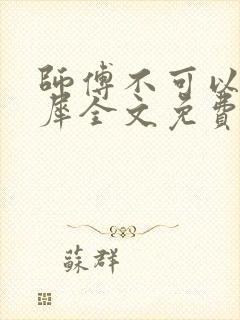 師傅不可以
犀全文免費
蘇群